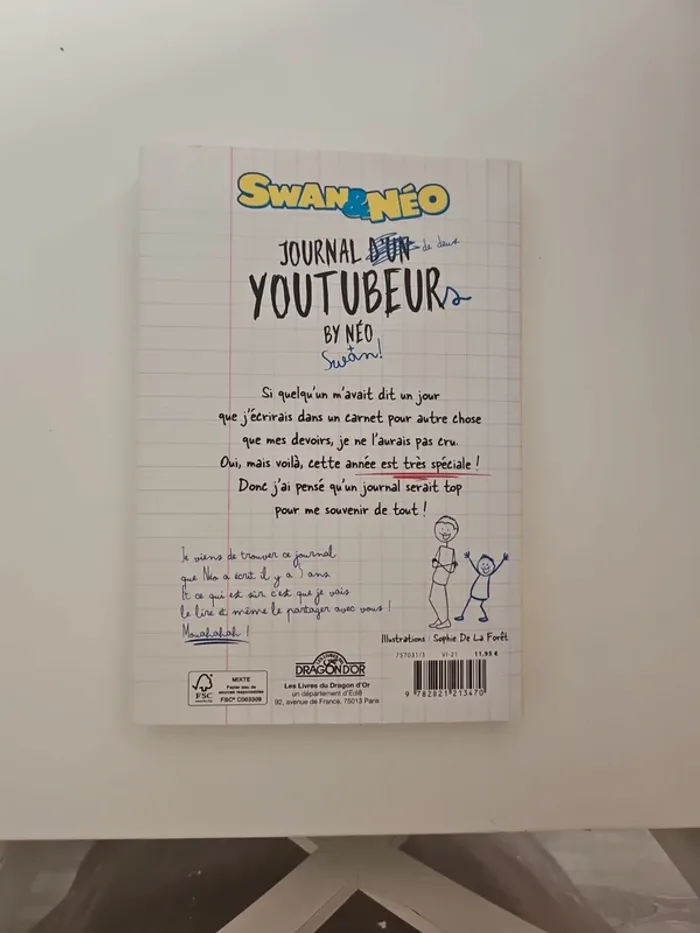 SWAN&NÉO
JOURNAL D'UN de deux
YOUTUBEURs
BY NÉO
+ Swan!
Si quelqu'un m'avait dit un jour
que j'écrirais dans un carnet pour autre chose
que mes devoirs, je ne l'aurais pas cru.
Oui, mais voilà, cette année est très spéciale !
Donc j'ai pensé qu'un journal serait top
pour me souvenir de tout !
Je viens de trouver ce journal
que Néo a écrit il y a 3 ans
Et ce qui est sûr c'est que je vais
le lire et même le partager avec vous !
Mouahahah !
Illustrations : Sophie De La Forêt
757031/3 VI-21 11,95 €
FSC
MIXTE
Papier issu de
sources responsables
FSC® C003309
LES LIVRES DU
DRAGON D'OR
Les Livres du Dragon d'Or
un département d'Edi8
92, avenue de France, 75013 Paris
9 782821 213470